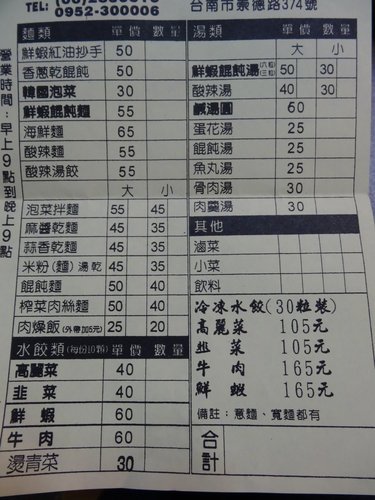 0952-300006
台南市崇德路374號
營業時間:早上9點到晚上9點
麵類 單價 數量
鮮蝦紅油抄手 50
香蔥乾餛飩 50
韓國泡菜 30
鮮蝦餛飩麵 55
海鮮麵 65
酸辣麵 55
酸辣湯餃 55
大 小
泡菜拌麵 55 45
麻醬乾麵 45 35
蒜香乾麵 45 35
米粉(麵)湯乾 45 35
餛飩麵 50 40
榨菜肉絲麵 50 40
肉燥飯(外帶加5元) 25 20
水餃類(每份10顆) 單價 數量
高麗菜 40
韭菜 40
鮮蝦 60
牛肉 60
燙青菜 30
湯類 單價 數量
大 小
鮮蝦餛飩湯 50 30
酸辣湯 40 30
鹹湯圓 60
蛋花湯 25
餛飩湯 25
魚丸湯 25
骨肉湯 30
肉羹湯 30
其他
滷菜
小菜
飲料
冷凍水餃(30粒裝)
高麗菜 105元
韭菜 105元
牛肉 165元
鮮蝦 165元
備註:意麵、寬麵都有
合計